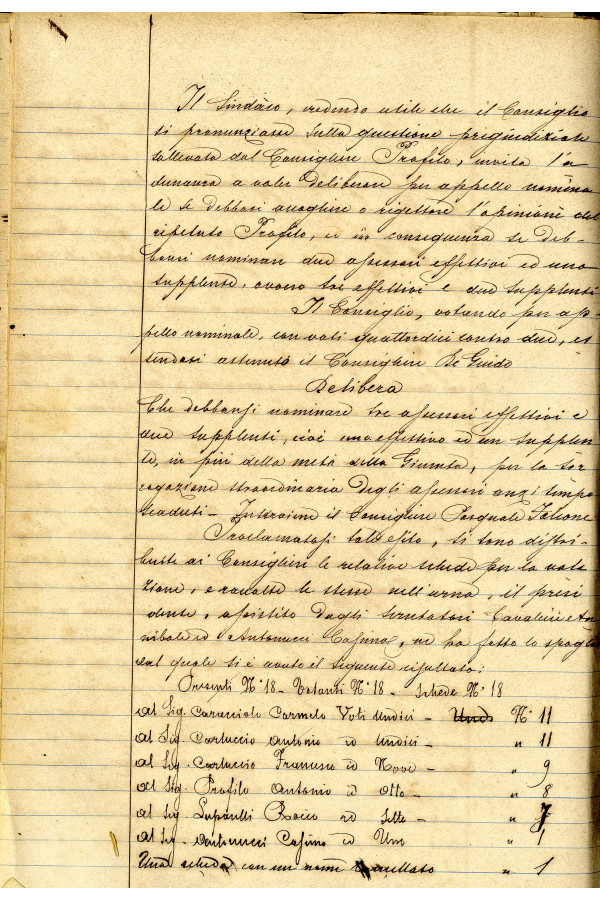 Il Sindaco, credendo utile che il Consiglio
si pronunziasse sulla questione pregiudiziale
sollevata dal Consigliere Profilo, invita l'a
dunanza a voler deliberare per appello nomina
le se debbasi accogliere o rigettare l'opinione del
ripetuto Profilo, e in conseguenza se deb-
bansi nominare due assessori effettivi ed uno
supplente, ovvero tre effettivi e due supplenti
Il Consiglio, votando per ap-
pello nominale, con voti quattordici contro due, es
sendosi astenuto il Consigliere De Guido
Delibera
Che debbansi nominare tre assessori effettivi e
due supplenti, cioè uno effettivo ed un supplen
te, in più della metà della Giunta, per la sor
rogazione straordinaria degli assessori anzi tempo
scaduti - Interviene il Consigliere Pasquale
Proclamatosi tale esito, si sono distri-
buite ai Consiglieri le relative schede per la vota
zione, e raccolte le stesse nell'urna, il presi
dente, assistito dagli scrutatori Cavaliere An
nibale ed Antonucci Cosimo, ne ha fatto lo spoglio
dal quale si è avuto il seguente risultato:
Presenti N° 18 - Votanti N° 18 - Schede N° 18
Al Sig. Caracciolo Carmelo Voti Undici - N° 11
Al Sig. Carluccio Antonio id Undici - " 11
Al Sig. Carluccio Francesco id Nove - " 9
Al Sig. Profilo Antonio id Otto - " 8
Al Sig. Lupinelli Rocco id Sette - " 7
Al Sig. Antonucci Cosimo id Uno " 1
Una scheda con un nome cancellato " 1